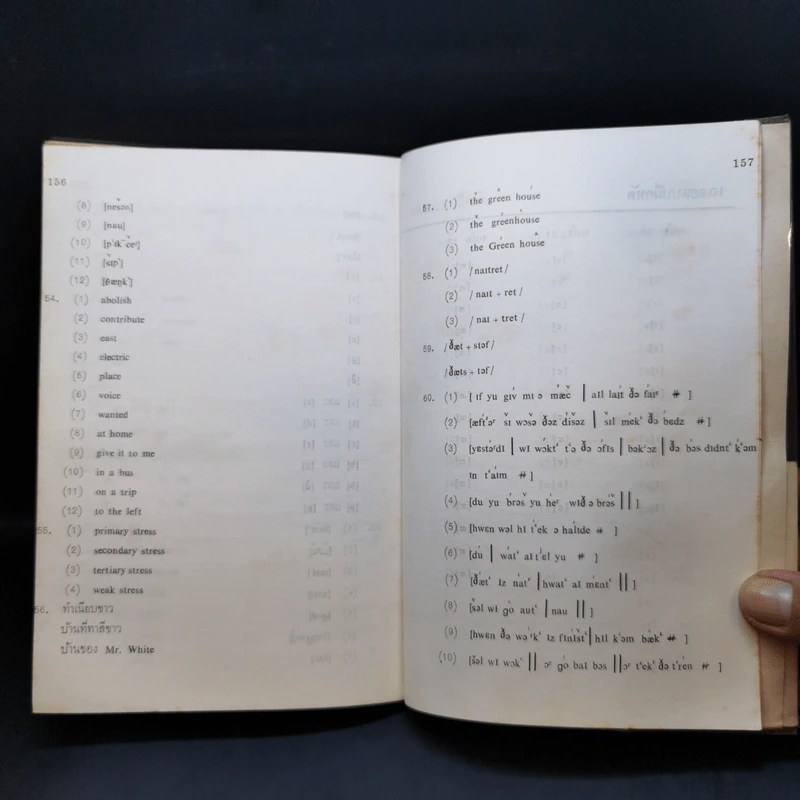 156
(8) [nešən]
(9) [nau]
(10) [p'ɪk č
(11) [sɪp']
(12) [θæŋk']
54. (1) abolish
(2) contribute
(3) east
(4) electric
(5) place
(6) voice
(7) wanted
(8) at home
(9) give it to me
(10) in a bus
(11) on a trip
(12) to the left
55. (1) primary stress
(2) secondary stress
(3) tertiary stress
(4) weak stress
56. ทำเนียบขาว
บ้านที่ทาสีขาว
บ้านของ Mr. White
157
57. (1) the green house
(2) the greenhouse
(3) the Green house
58. (1) /naɪtret/
(2) /naɪt + ret/
(3) /naɪ + tret/
59. /ðæt + stəf/
/ðæts + təf/
60. (1) [ɪf yu gɪv mɪ ə mæč | aɪl laɪt ðə faɪʳ # ]
(2) [æft'əʳ šɪ wəšə ðəz dɪšəz | šɪl mek' ðə bɛdz # ]
(3) [yɛstəʳdɪ | wɪ wɔkt' t'ə ðə ɔfɪs | bək'ɔz | ðə bəs dɪdnt' k'əm
ɪn t'aɪm # ]
(4) [du yu brəš yu heʳ wɪð ə brəš || ]
(5) [hwɛn wəl hɪ t'ek ə halɪde # ]
(6) [du | wat' aɪ t'ɛl yu # ]
(7) [ðæt' ɪz nat' | hwat' aɪ mɛnt' || ]
(8) [šəl wɪ go aut' | nau || ]
(9) [hwɛn ðə wəʳk' ɪz fɪnɪšt' | hɪl k'əm bæk' # ]
(10) [šəl wɪ wɔk' || ɔʳ go baɪ bəs || ɔʳ t'ek' ðə t'ren # ]